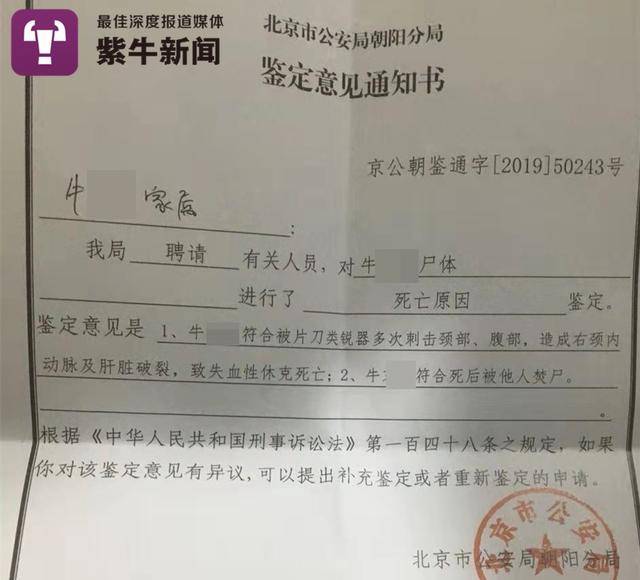 最佳深度报道媒体
紫牛新闻
北京市公安局朝阳分局
鉴定意见通知书
京公朝鉴通字[2019]50243号
牛 家属
:
我局 聘请 有关人员，对牛 尸体
进行了 死亡原因 鉴定。
鉴定意见是 1、牛 符合被片刀类锐器多次刺击颈部、腹部，造成右颈内
动脉及肝脏破裂，致失血性休克死亡；2、牛 符合死后被他人焚尸。
。
根据《中华人民共和国刑事诉讼法》第一百四十八条之规定，如果
你对该鉴定意见有异议，可以提出补充鉴定或者重新鉴定的申请。
北京市公安局
北京市公安局朝阳分局